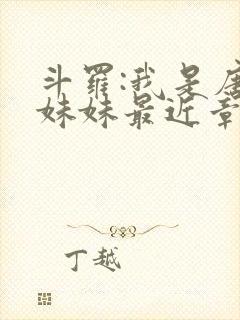 斗罗:我是唐
妹妹最近章
丁越